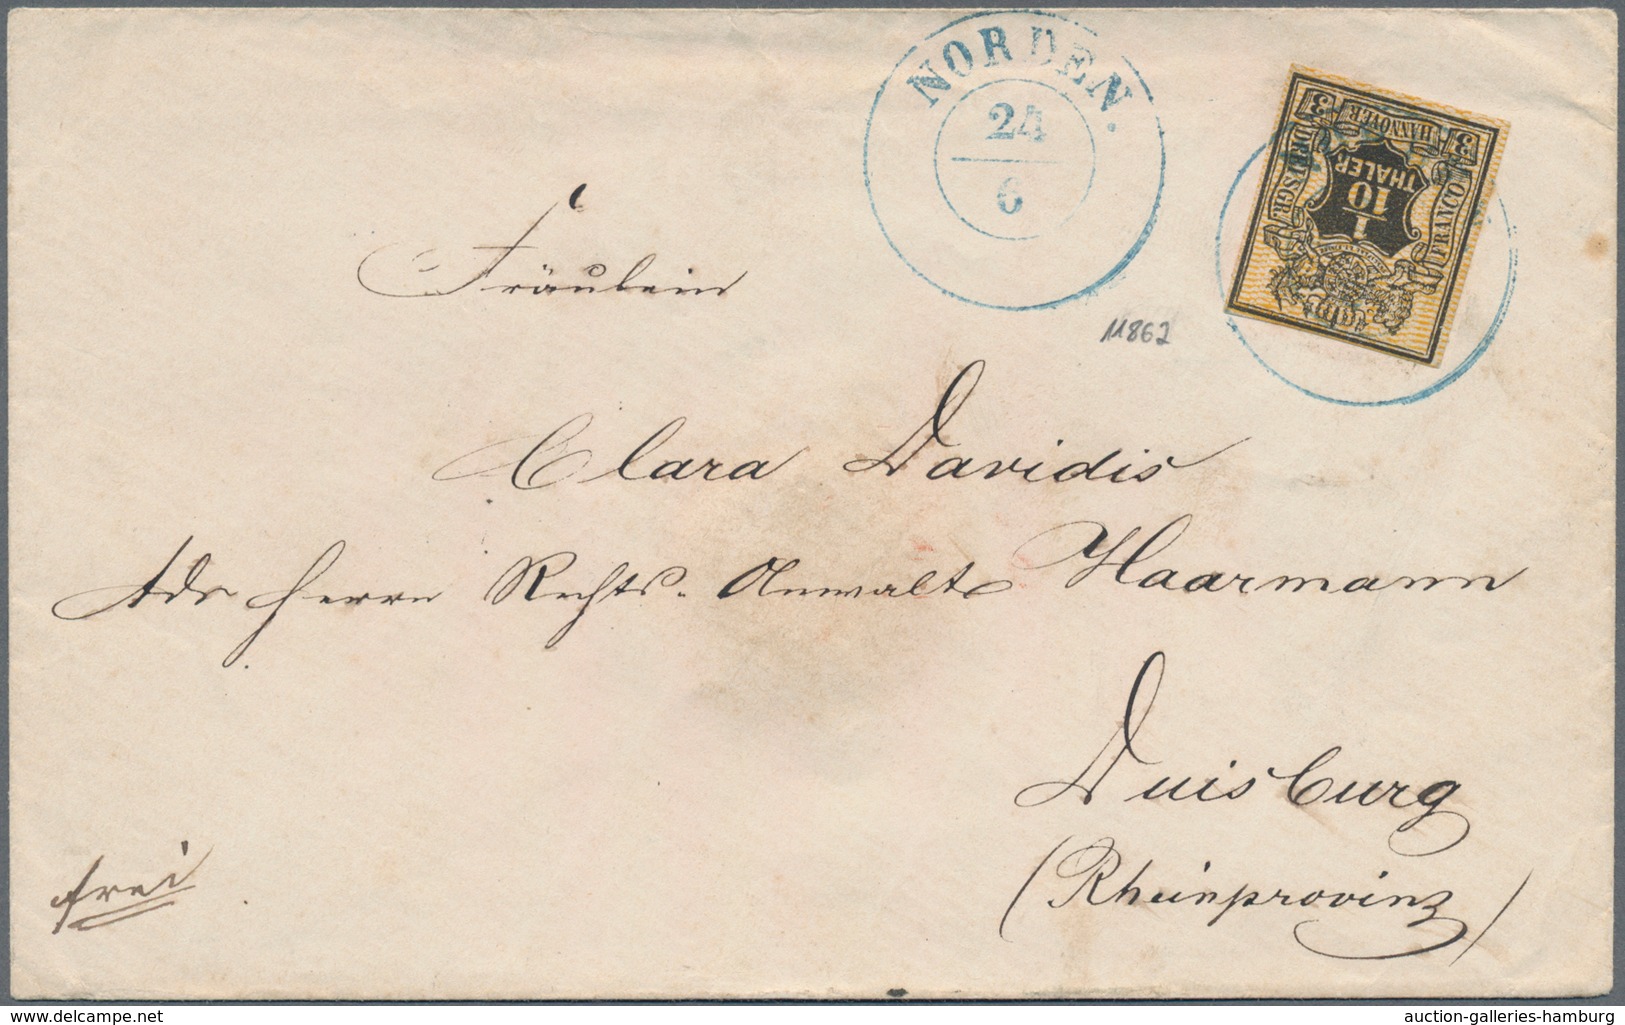 NORDEN.
24
6
3 HANNOVER 3
FRANCO
DREI SGR.
1/10
THALER
11862
Fräulein
Clara Davidis
Adr Herrn Rechts-Anwalts Haarmann
Duisburg
(Rheinprovinz)
frei
www.delcampe.net
auction-galleries-hamburg